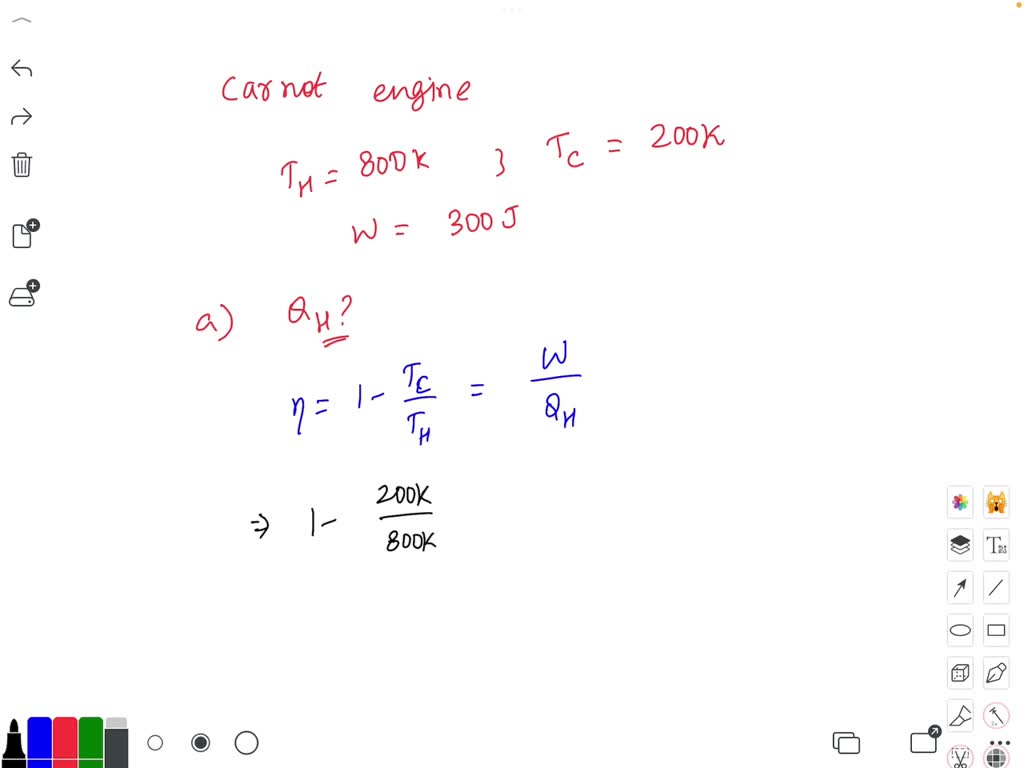 Carnot engine
T_H = 800K ; T_C = 200K
W = 300J
a) Q_H?
η = 1 - T_C/T_H = W/Q_H
⇒ 1 - 200K/800K